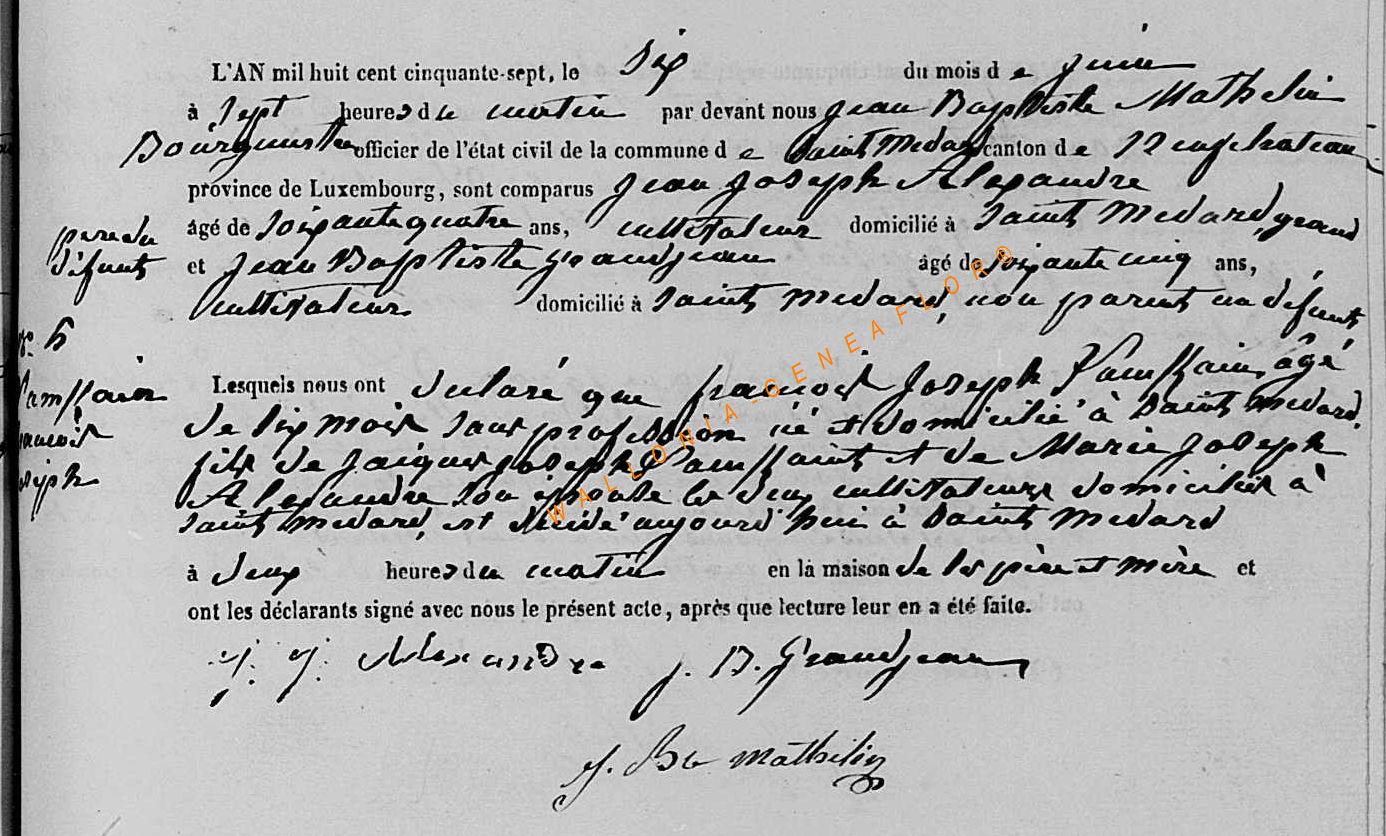 L'AN mil huit cent cinquante-sept, le six du mois de juin
à sept heures du matin par devant nous jean Baptiste Mathelin
Bourgmestre officier de l'état civil de la commune de Saint Medard canton de Neufchateau
province de Luxembourg, sont comparus jean joseph Alexandre
âgé de soixante quatre ans, cultivateur domicilié à Saint Medard, grand
père du
défunt
et jean Baptiste grandjean âgé de soixante cinq ans,
cultivateur domicilié à Saint Medard, non parent au défunt
n° 5
François
joseph
Lesquels nous ont déclaré que françois joseph âgé
de six mois sans profession né et domicilié à Saint Medard.
fils de jaques joseph et de Marie joseph
Alexandre son épouse les deux cultivateurs domiciliés à
Saint Medard, est décédé aujourd'hui à Saint Medard
à deux heures du matin en la maison de les père et mère et
ont les déclarants signé avec nous le présent acte, après que lecture leur en a été faite.
j. j. Alexandre j. B. Grandjean
j. Bte mathelin
WALLONIA GENEAFLOR®